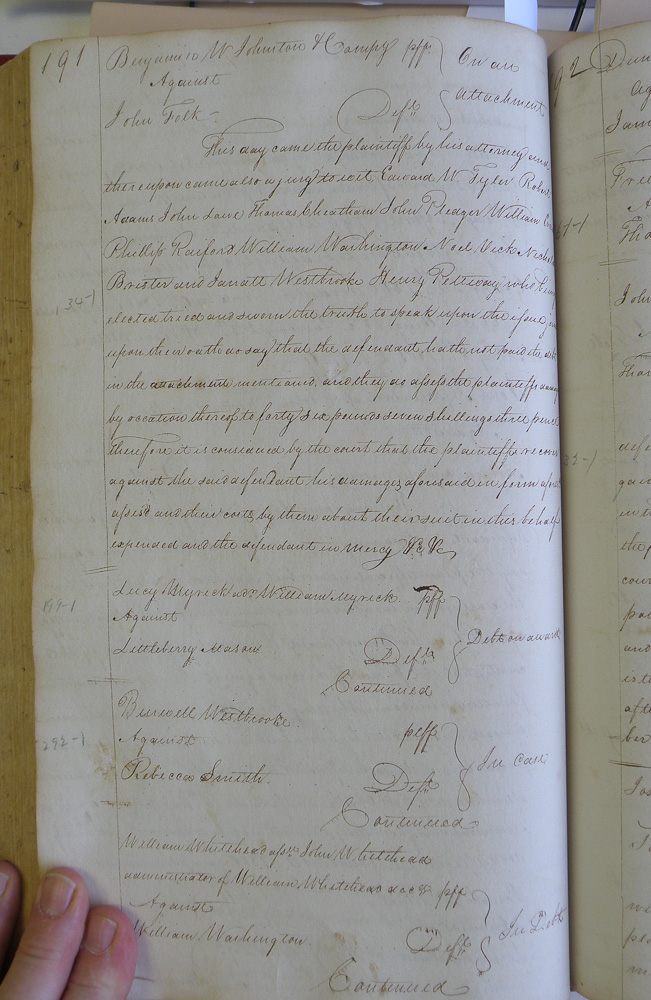 191
Benjamin W Johnston & Compy pff
Against
On an
attachment
John Folk
Deft
This day came the plaintiff by his attorney and
thereupon came also a jury to wit Edward W. Tyler Robert
Adams John Lane Thomas Cheatham John Pledger William
Phillip Raiford William Washington Noel Vick
Brister and Janatt Westbrooke Henry who being
134-1
elected tried and sworn the truth to speak upon the issue
upon their oath do say that the defendant hath not paid the debt
in the attachment mentioned, and they do assess the plaintiffs damages
by occation thereof to forty six pounds seven shillings three pence
therefore it is considered by the court that the plaintiffs recover
against the said defendant his damages aforesaid in form
assessd and their costs by them about their suit in this behalf
expended and the defendant in mercy &c &c
Lucy Myrick William Myrick pff
199-1
Against
Debt on award
Littleberry Mason
Deft
Continued
Burwell Westbrooke
292-1
Against
plff
In case
Rebecca Smith
Deft
Continued
William Whitehead John Whitehead
administrator of William Whitehead decd pff
Against
In Debt
William Washington
Deft
Continued
92